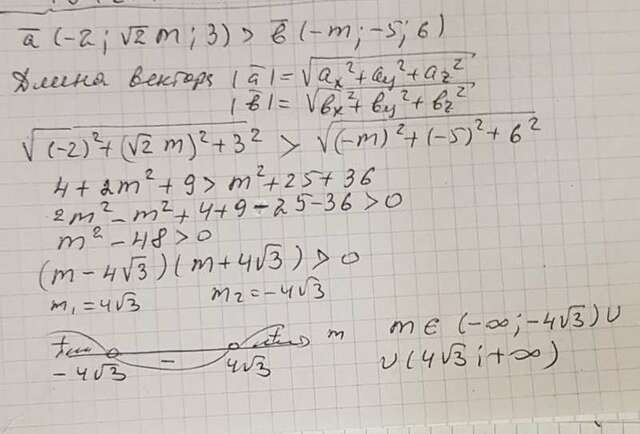 a̅ (-2; √2 m; 3) > b̅ (-m; -5; 6)
Длина вектора |a̅| = √(ax² + ay² + az²)
|b̅| = √(bx² + by² + bz²)
√((-2)² + (√2 m)² + 3²) > √((-m)² + (-5)² + 6²)
4 + 2m² + 9 > m² + 25 + 36
2m² - m² + 4 + 9 - 25 - 36 > 0
m² - 48 > 0
(m - 4√3)(m + 4√3) > 0
m₁ = 4√3 m₂ = -4√3
+ - + m
-4√3 4√3
m ∈ (-∞; -4√3) ∪
∪ (4√3; +∞)